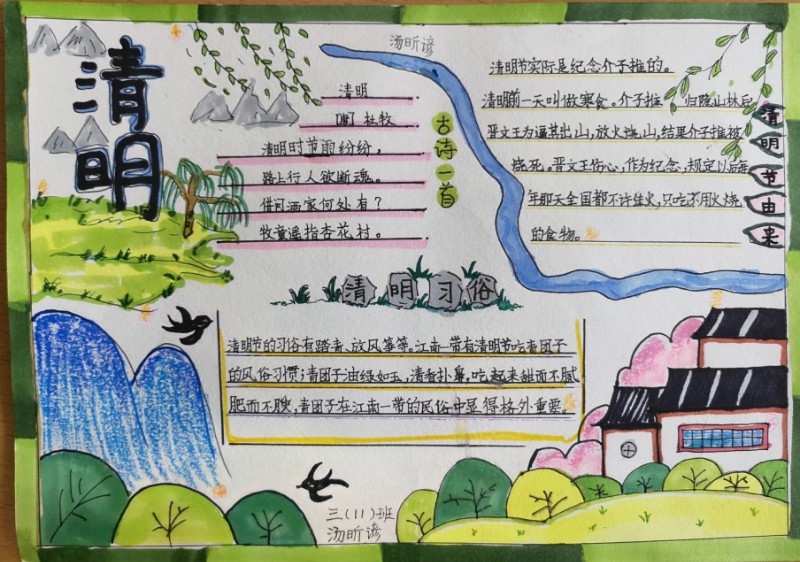 清明
汤昕谚
清明
【唐】杜牧
清明时节雨纷纷。
路上行人欲断魂。
借问酒家何处有？
牧童遥指杏花村。
古诗一首
清明节实际是纪念介子推的。
清明前一天叫做寒食。介子推 归隐山林后
晋文王为逼其出山，放火烧山，结果介子推被
烧死，晋文王伤心，作为纪念，规定以后每
年那天全国都不许生火，只吃不用火烧
的食物。
清明节由来
清明习俗
清明节的习俗有踏青、放风筝等。江南一带有清明节吃青团子
的风俗习惯；青团子油绿如玉，清香扑鼻，吃起来甜而不腻
肥而不腴，青团子在江南一带的民俗中显得格外重要。
三（11）班
汤昕谚